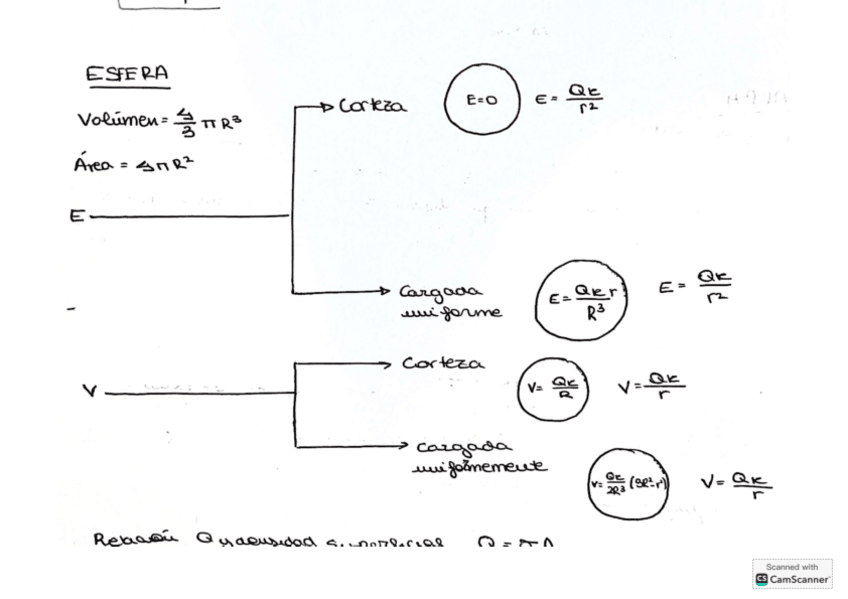 ESFERA
Volúmen = 4/3 π R³
Área = 4πR²
E
Corteza E=0 E = QK/r²
Cargada uniforme E = QKr/R³ E = QK/r²
V
Corteza V = QK/R V = QK/r
Cargada uniformemente V = QK/2R³ (3R²-r²) V = QK/r
Relación Q y densidad
Scanned with
CS CamScanner